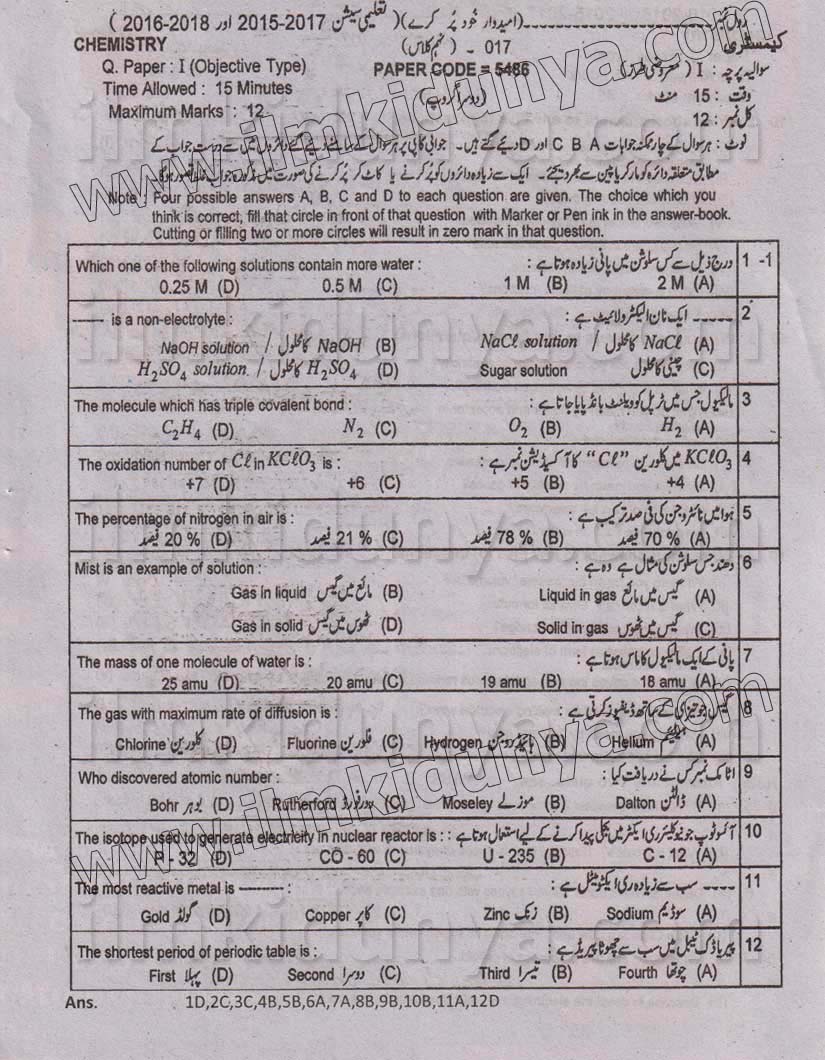 رول نمبر ــــــــــــ (امیدوار خود پُر کرے) (تعلیمی سیشن 2017-2015 اور 2018-2016)
CHEMISTRY 017 - (نہم کلاس) کیمسٹری
Q. Paper : I (Objective Type) PAPER CODE = 5486 سوالیہ پرچہ : I (معروضی طرز)
Time Allowed : 15 Minutes (دوسرا گروپ) وقت : 15 منٹ
Maximum Marks : 12 کل نمبر : 12
نوٹ : ہر سوال کے چار ممکنہ جوابات A B C اور D دیئے گئے ہیں۔ جوابی کاپی پر ہر سوال کے سامنے دیئے گئے دائروں میں سے درست جواب کے
مطابق متعلقہ دائرہ کو مارکر یا پین سے بھر دیجئے۔ ایک سے زیادہ دائروں کو پُر کرنے یا کاٹ کر پُر کرنے کی صورت میں مذکورہ جواب غلط تصور ہو گا۔
Note : Four possible answers A, B, C and D to each question are given. The choice which you
think is correct, fill that circle in front of that question with Marker or Pen ink in the answer-book.
Cutting or filling two or more circles will result in zero mark in that question.
Which one of the following solutions contain more water : درج ذیل سے کس سلوشن میں پانی زیادہ ہوتا ہے : 1 -1
0.25 M (D) 0.5 M (C) 1 M (B) 2 M (A)
------ is a non-electrolyte : ـــــ ایک نان الیکٹرولائیٹ ہے : 2
NaOH solution / NaOH کا محلول (B) NaCℓ solution / NaCℓ کا محلول (A)
H₂SO₄ solution / H₂SO₄ کا محلول (D) Sugar solution چینی کا محلول (C)
The molecule which has triple covalent bond : مالیکیول جس میں ٹرپل کوویلنٹ بانڈ پایا جاتا ہے : 3
C₂H₄ (D) N₂ (C) O₂ (B) H₂ (A)
The oxidation number of Cℓ in KCℓO₃ is : KCℓO₃ میں کلورین "Cℓ" کا آکسیڈیشن نمبر ہے : 4
+7 (D) +6 (C) +5 (B) +4 (A)
The percentage of nitrogen in air is : ہوا میں نائٹروجن کی فی صد ترکیب ہے : 5
20 % فیصد (D) 21 % فیصد (C) 78 % فیصد (B) 70 % فیصد (A)
Mist is an example of solution : دھند جس سلوشن کی مثال ہے وہ ہے : 6
Gas in liquid مائع میں گیس (B) Liquid in gas گیس میں مائع (A)
Gas in solid ٹھوس میں گیس (D) Solid in gas گیس میں ٹھوس (C)
The mass of one molecule of water is : پانی کے ایک مالیکیول کا ماس ہوتا ہے : 7
25 amu (D) 20 amu (C) 19 amu (B) 18 amu (A)
The gas with maximum rate of diffusion is : گیس جو تیزی کے ساتھ ڈیفیوز کرتی ہے : 8
Chlorine کلورین (D) Fluorine فلورین (C) Hydrogen ہائیڈروجن (B) Helium ہیلیم (A)
Who discovered atomic number : اٹامک نمبر کس نے دریافت کیا : 9
Bohr بوہر (D) Rutherford ردرفورڈ (C) Moseley موزلے (B) Dalton ڈالٹن (A)
The isotope used to generate electricity in nuclear reactor is : آئسوٹوپ جو نیوکلیئر ری ایکٹر میں بجلی پیدا کرنے کے لیے استعمال ہوتا ہے : 10
P - 32 (D) CO - 60 (C) U - 235 (B) C - 12 (A)
The most reactive metal is --------- : ــــ سب سے زیادہ ری ایکٹو میٹل ہے : 11
Gold گولڈ (D) Copper کاپر (C) Zinc زنک (B) Sodium سوڈیم (A)
The shortest period of periodic table is : پیریاڈک ٹیبل میں سب سے چھوٹا پیریڈ ہے : 12
First پہلا (D) Second دوسرا (C) Third تیسرا (B) Fourth چوتھا (A)
Ans. 1D,2C,3C,4B,5B,6A,7A,8B,9B,10B,11A,12D
www.ilmkidunya.com
ilmkidunya.com
www.ilmkidunya.com